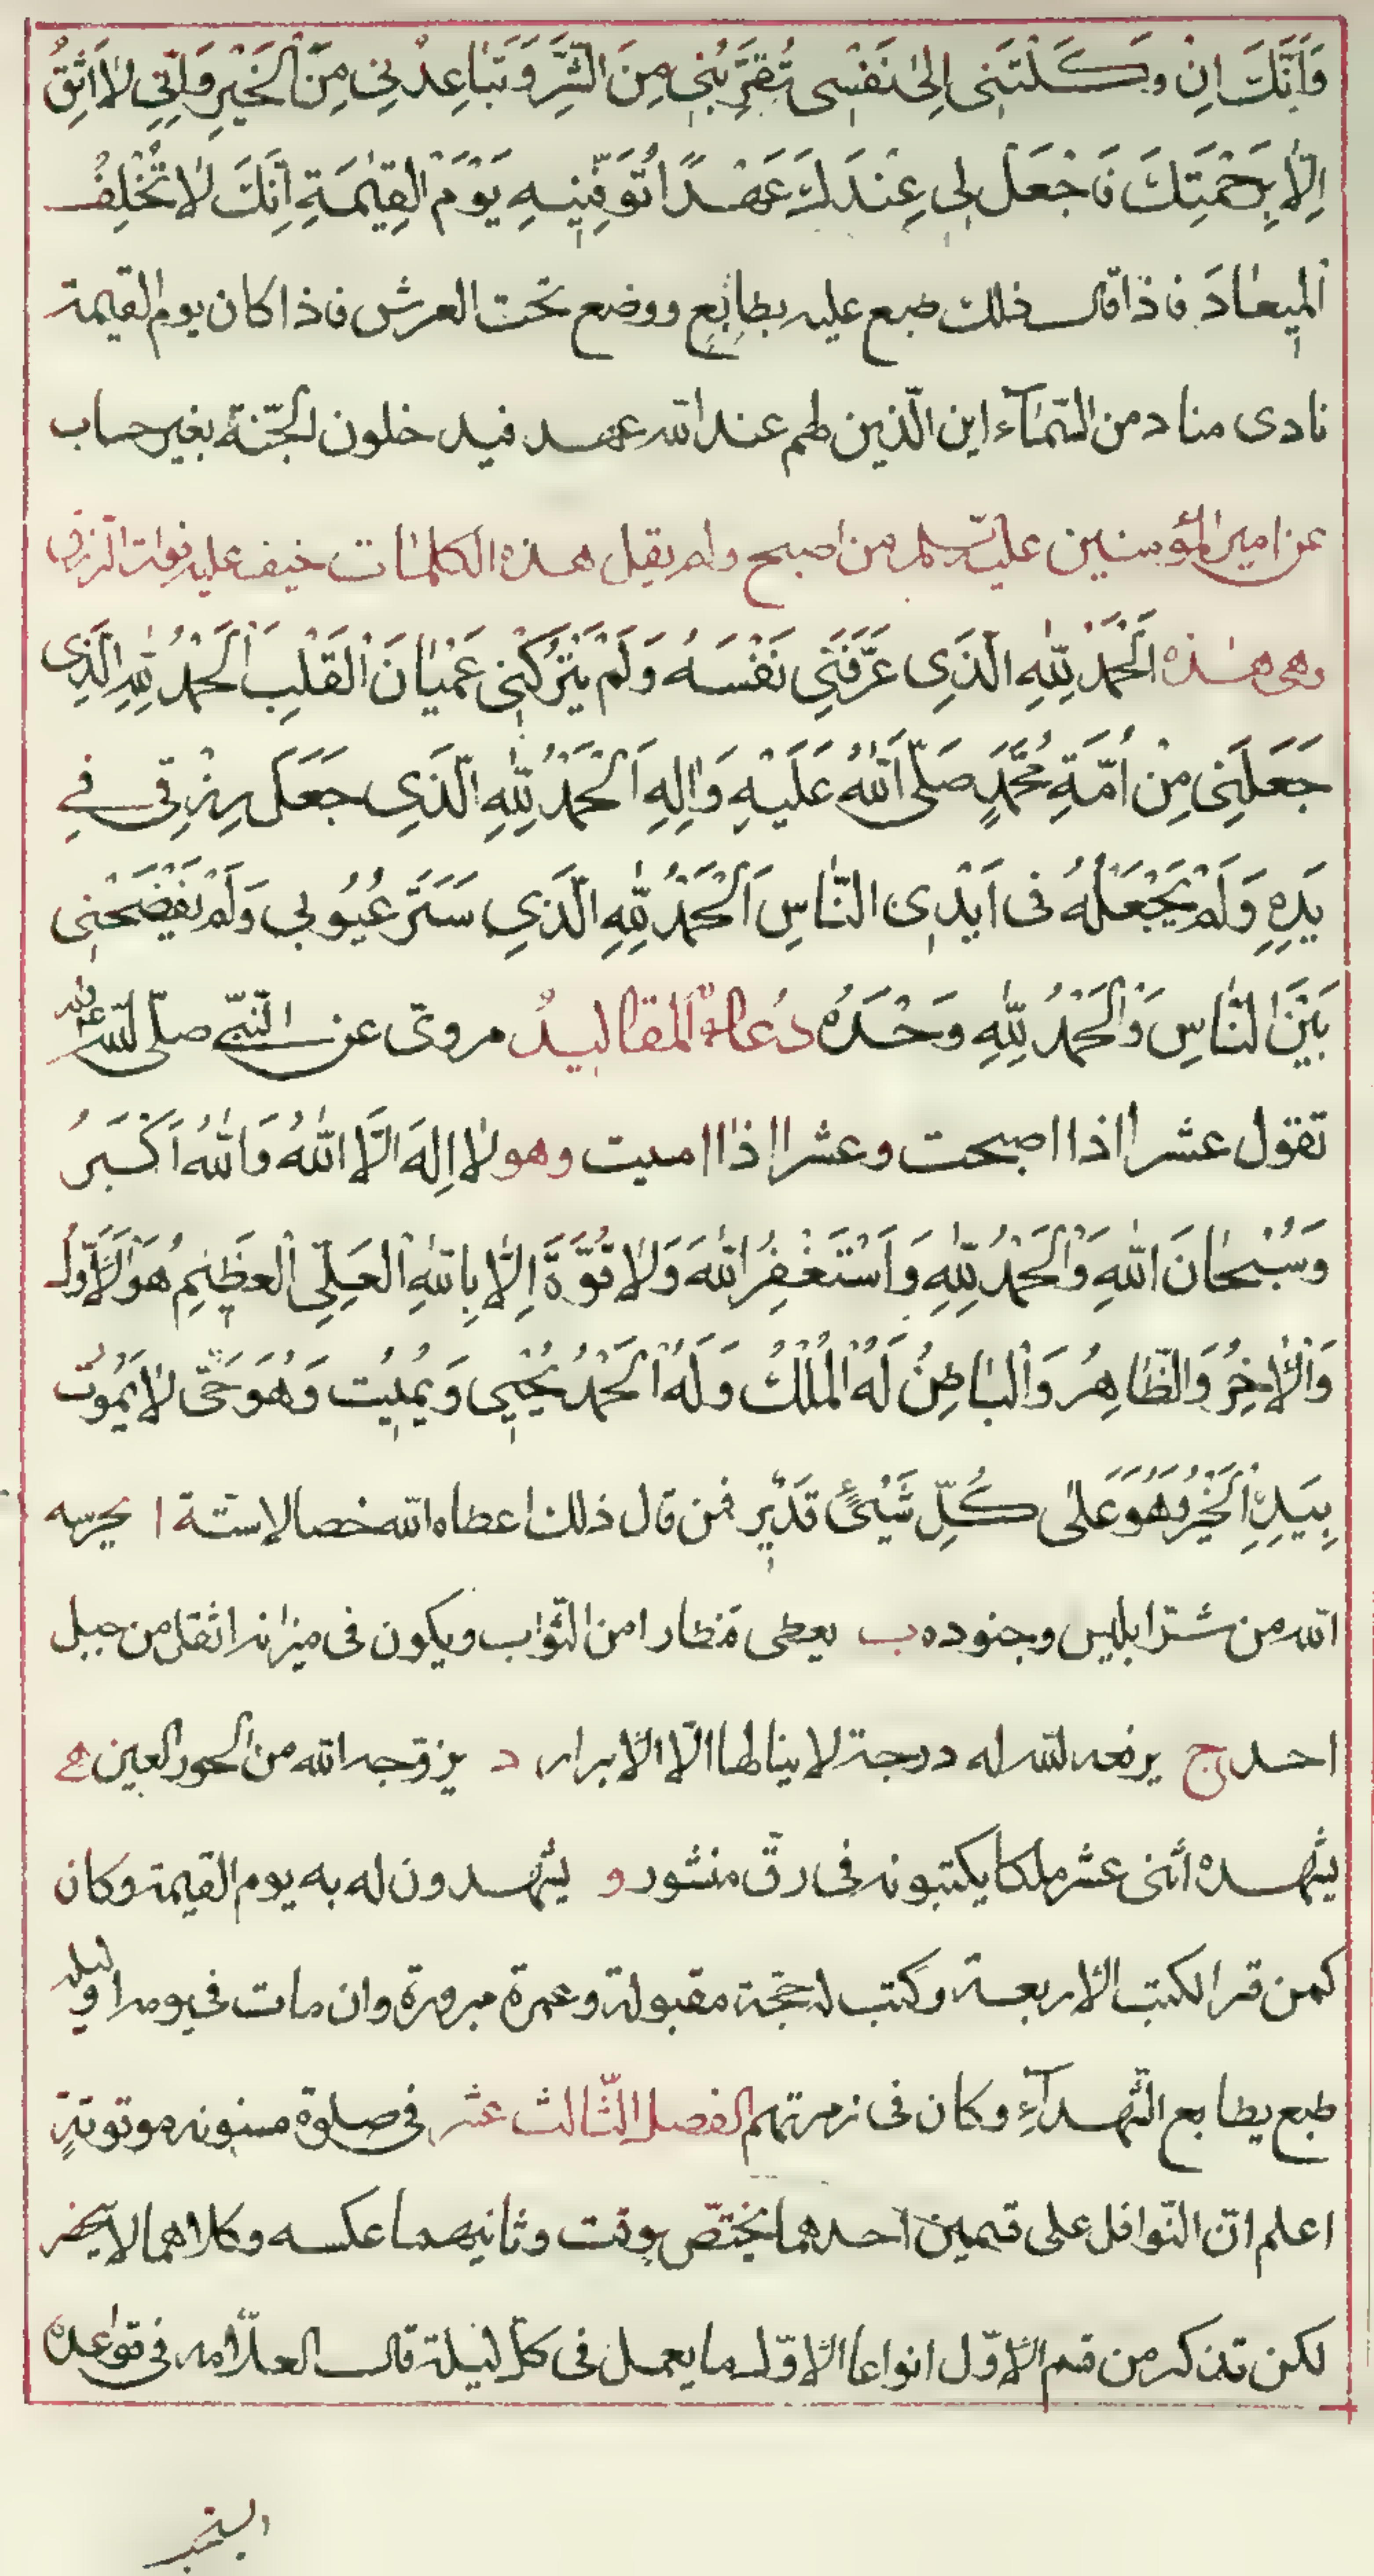 وَاَنَّكَ اِنْ وَكَلْتَنِى اِلىٰ نَفْسِى تُقَرِّبُنِى مِنَ الشَّرِّ وَتُبَاعِدْنِى مِنَ الْخَيْرِ وَاِنِّى لاٰ اَثِقُ
اِلّاٰ بِرَحْمَتِكَ فَاجْعَلْ لِى عِنْدَكَ عَهْدًا تُوَفِّنِيهِ يَوْمَ الْقِيٰمَةِ اِنَّكَ لاٰ تُخْلِفُ
الْمِيعٰادَ فاذا قال ذلك طبع عليه بطابع ووضع تحت العرش فاذا كان يوم القيٰمة
نادى مناد من السّمٰآء اين الّذين لهم عند الله عهد فيدخلون الجّنة بغير حساب
عن امير المؤمنين عليه السلم من اصبح ولم يقل هذه الكلمٰات خيف عليه فوات الرزق
وهى هٰذه اَلْحَمْدُ لِلّٰهِ الَّذِى عَرَّفَنِى نَفْسَهُ وَلَمْ يَتْرُكْنِى عَمْيٰانَ الْقَلْبِ اَلْحَمْدُ لِلّٰهِ الَّذِى
جَعَلَنِى مِنْ اُمَّةِ مُحَمَّدٍ صَلَّى اللّٰهُ عَلَيْهِ وَاٰلِهِ اَلْحَمْدُ لِلّٰهِ الَّذِى جَعَلَ رِزْقِى فِى
يَدِهِ وَلَمْ يَجْعَلْهُ فى اَيْدِى النّٰاسِ اَلْحَمْدُ لِلّٰهِ الَّذِى سَتَرَ عُيُوبِى وَلَمْ يَفْضَحْنِى
بَيْنَ النّٰاسِ وَالْحَمْدُ لِلّٰهِ وَحْدَهُ دُعاءُ المقاليدُ مروىّ عن النّبىّ صلّى الله عليه وآله
تقول عشرا اذا اصبحت وعشرا اذا امسيت وهو لاٰ اِلٰهَ اِلَّا اللّٰهُ وَاللّٰهُ اَكْبَرُ
وَسُبْحٰانَ اللّٰهِ وَالْحَمْدُ لِلّٰهِ وَاَسْتَغْفِرُ اللّٰهَ وَلاٰ قُوَّةَ اِلّاٰ بِاللّٰهِ الْعَلِىِّ الْعَظِيمِ هُوَ الْاَوَّلُ
وَالْاٰخِرُ وَالظّٰاهِرُ وَالْبٰاطِنُ لَهُ الْمُلْكُ وَلَهُ الْحَمْدُ يُحْيِى وَيُمِيتُ وَهُوَ حَىٌّ لاٰ يَمُوتُ
بِيَدِهِ الْخَيْرُ وَهُوَ عَلىٰ كُلِّ شَيْئٍ قَدِيْر فمن قال ذلك اعطاه الله خصالا ستّة ا يحرسه
الله من شرّ ابليس وجنوده ب يعطى قنطارا من الثّواب ويكون فى ميزانه اثقل من جبل
احد ج يرفع الله له درجة لا ينالها الّا الابرار د يزوّجه الله من الحور العين ه
يشهده اثنى عشر ملكا يكتبونه فى رقّ منشور و يشهدون له به يوم القيمة وكان
كمن قرا الكتب الاربعة وكتب له حجّة مقبولة وعمرة مبرورة وان مات فى يومه او ليلته
طبع بطابع الشّهدآء وكان فى زمرتهم الفصل الثّالث عشر فى صلوة مسنونه موقوتةٍ
اعلم انّ النّوافل على قسمين احدهما يختصّ بوقت وثانيهما عكسه وكلاهما لا ينحصر
لكن نذكر من قسم الاوّل انواعا الاوّل ما يعمل فى كلّ ليلة قال العلّامه فى قواعده